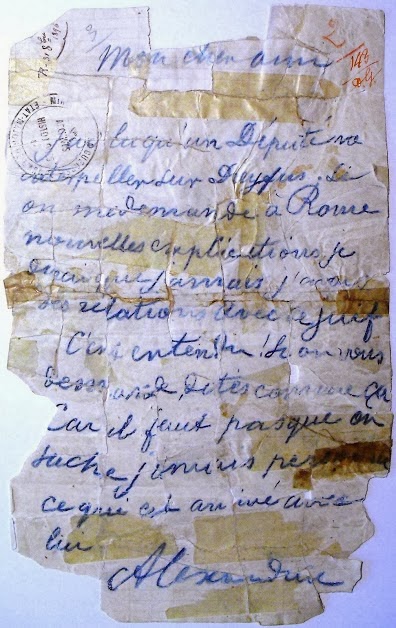 Mon cher ami
J'ai lu qu'un Député va
interpeller sur Dreyfus. Si
on me demande à Rome
nouvelles explications, je
dirai que jamais j'avais
des relations avec ce Juif
C'est entendu! Si on vous
demande, dites comme ça
Car il faut pas que on
sache jamais personne
ce qui est arrivé avec
lui
Alexandrine